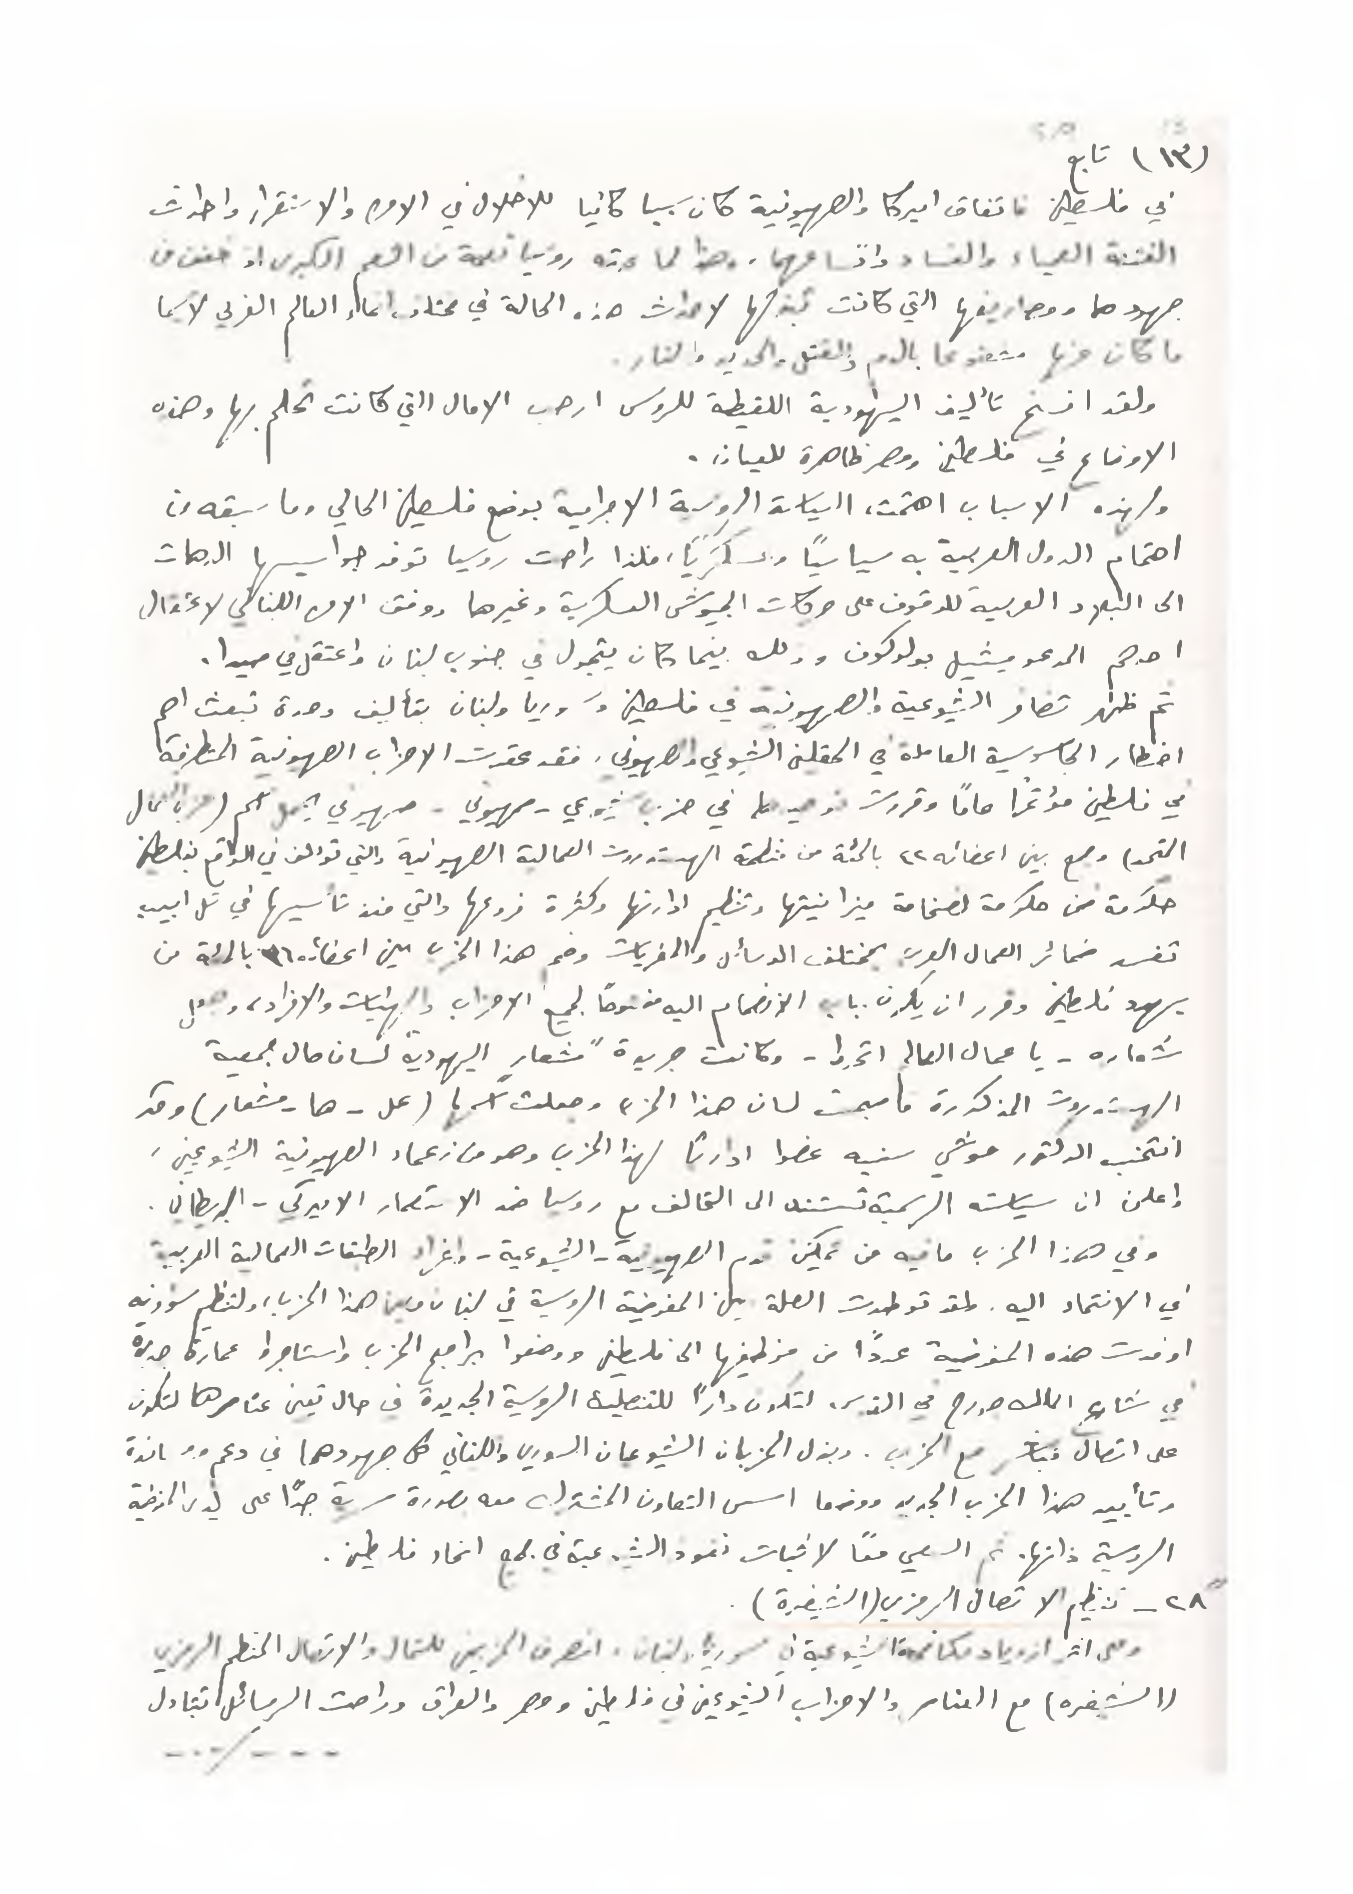 (١٣) تابع
في فلسطين فاتفاق اميركا والصهيونية كان سببا كافيا للاخلال في الامن والاستقرار واحداث
الفتنة العمياء والفساد واتساعهما، وهذا لما عدته روسيا نعمة من النعم الكبرى اذ خففت من
جهودها ومصاريفها التي كانت تبذلها لاحداث هذه الحالة في مختلف انحاء العالم الغربي لا سيما
ما كان منها مشفوعا بالدم والقتل والحديد والنار.
ولقد افسح تأليف اليهودية اللقيطة للروس ارحب الامال التي كانت تحلم بها وهذه
الاوضاع في فلسطين ومصر ظاهرة للعيان.
ولهذه الاسباب اهتمت السياسة الروسية الاجرامية بوضع فلسطين الحالي وما سبقه من
اهتمام الدول العربية به سياسيًا وعسكريًا، فلذا راحت روسيا توفد جواسيسها
الى البلاد العربية للوقوف على حركات الجيوش العسكرية وغيرها ووفق الامن اللبناني لاعتقال
احدهم المدعو ميشيل بولوكوف وذلك بينما كان يتجول في جنوب لبنان واعتقل في صيدا.
ثم ظهر تضافر الشيوعية والصهيونية في فلسطين وسوريا ولبنان بتأليف وحدة تبعث اهم
اخطار الجاسوسية العاملة في الحقلين الشيوعي والصهيوني، فقد عقدت الاحزاب الصهيونية المتطرفة
في فلسطين مؤتمرًا عامًا وقررت توحيدها في حزب شيوعي - صهيوني - صهيوني يحمل اسم (حزب العمال
المتحد) وجمع بين اعضائه ٢٢ بالمئة من منظمة الهستدروت العمالية الصهيونية والتي تؤالف في الواقع بفلسطين
حكومة ضمن حكومة لضخامة ميزانيتها وتنظيم ادارتها وكثرة فروعها والتي منذ تأسيسها في تل ابيب
تفسد ضمائر العمال العرب بمختلف الوسائل والمغريات وضم هذا الحزب بين اعضائه ٣٦ بالمئة من
يهود فلسطين وقرر ان يكون باب الانضمام اليه مفتوحًا لجميع الاحزاب والهيئات والافراد، وجعل
شعاره - يا عمال العالم اتحدوا - وكانت جريدة "مشمار" اليهودية لسان حال جمعية
الهستدروت المذكورة فاصبحت لسان هذا الحزب وجعلت اسمها (عل - ها - مشمار) وقد
انتخب الدكتور موشي سنيه عضوا اداريًا لهذا الحزب وهو من زعماء الصهيونية الشيوعيين،
واعلن ان سياسته الرسمية تستند الى التحالف مع روسيا ضد الاستعمار الاميركي - البريطاني.
وفي هذا الحزب ما فيه من تمكين قدم الصهيونية - الشيوعية - واغراء الطبقات العمالية العربية
في الانتماء اليه. ولقد توطدت الصلة بين المفوضية الروسية في لبنان وبين هذا الحزب، ولتنظيم شؤونه
اوفدت هذه المفوضية عددًا من موظفيها الى فلسطين ووضعوا برامج الحزب واستاجروا عمارة جديدة
في شارع الملك جورج في القدس لتكون دارًا للقنصلية الروسية الجديدة في حال تعيين عناصرها لتكون
على اتصال مباشر مع الحزب. وبذل الحزبان الشيوعيان السوري واللبناني كل جهودهما في دعم ومساندة
وتأييد هذا الحزب الجديد ووضعا اسس التعاون المشترك معه بصورة سرية جدًا على يدي المفوضية
الروسية ذاتها. ثم السعي معًا لاثبات نفوذ الشيوعية في جميع انحاء فلسطين.
٢٨ - تنظيم الاتصال الرمزي (الشيفرة).
وعلى اثر ازدياد مكافحة الشيوعية في سوريا ولبنان، انصرف الحزبين للنضال والاتصال المنظم الرمزي
(الشيفره) مع العناصر والاحزاب الشيوعيين في فلسطين ومصر والعراق وراحت الرسائل تتبادل